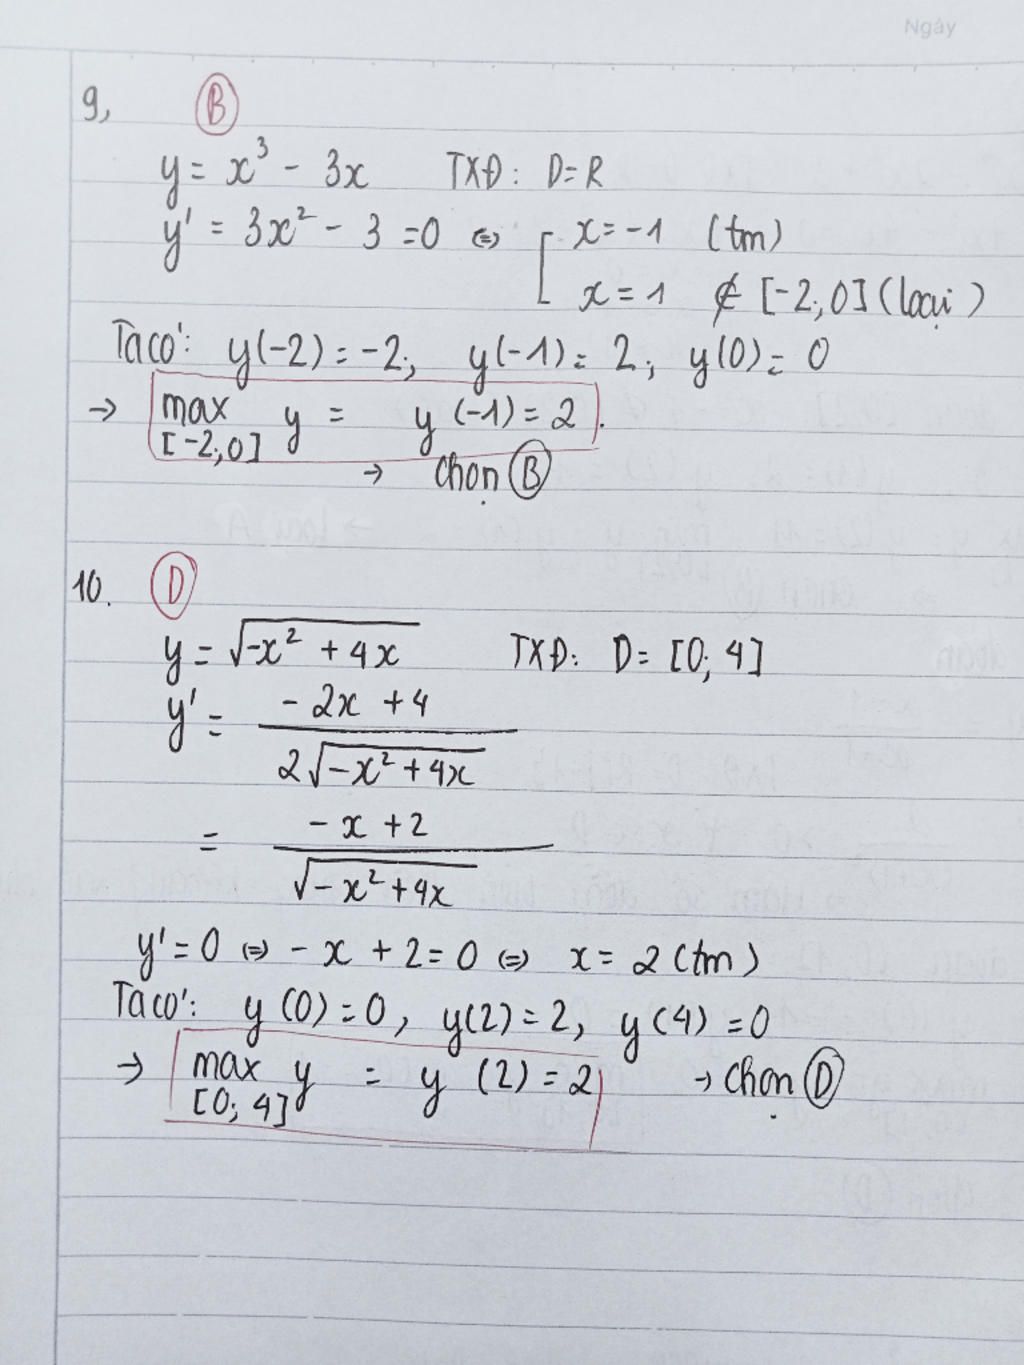 Ngày
9, B
y = x³ - 3x TXĐ: D=R
y' = 3x² - 3 =0 ⇔ [ x=-1 (tm)
x=1 ∉ [-2;0] (loại)
Ta có: y(-2)=-2; y(-1)=2; y(0)=0
→ max y = y(-1)=2.
[-2;0]
→ chọn B
10. D
y = √(-x² + 4x) TXĐ: D= [0; 4]
y' = (-2x +4)/(2√(-x²+4x))
= (-x +2)/(√(-x²+4x))
y'=0 ⇔ -x +2=0 ⇔ x=2 (tm)
Ta có: y(0)=0, y(2)=2, y(4)=0
→ max y = y (2)=2 → chọn D
[0; 4]